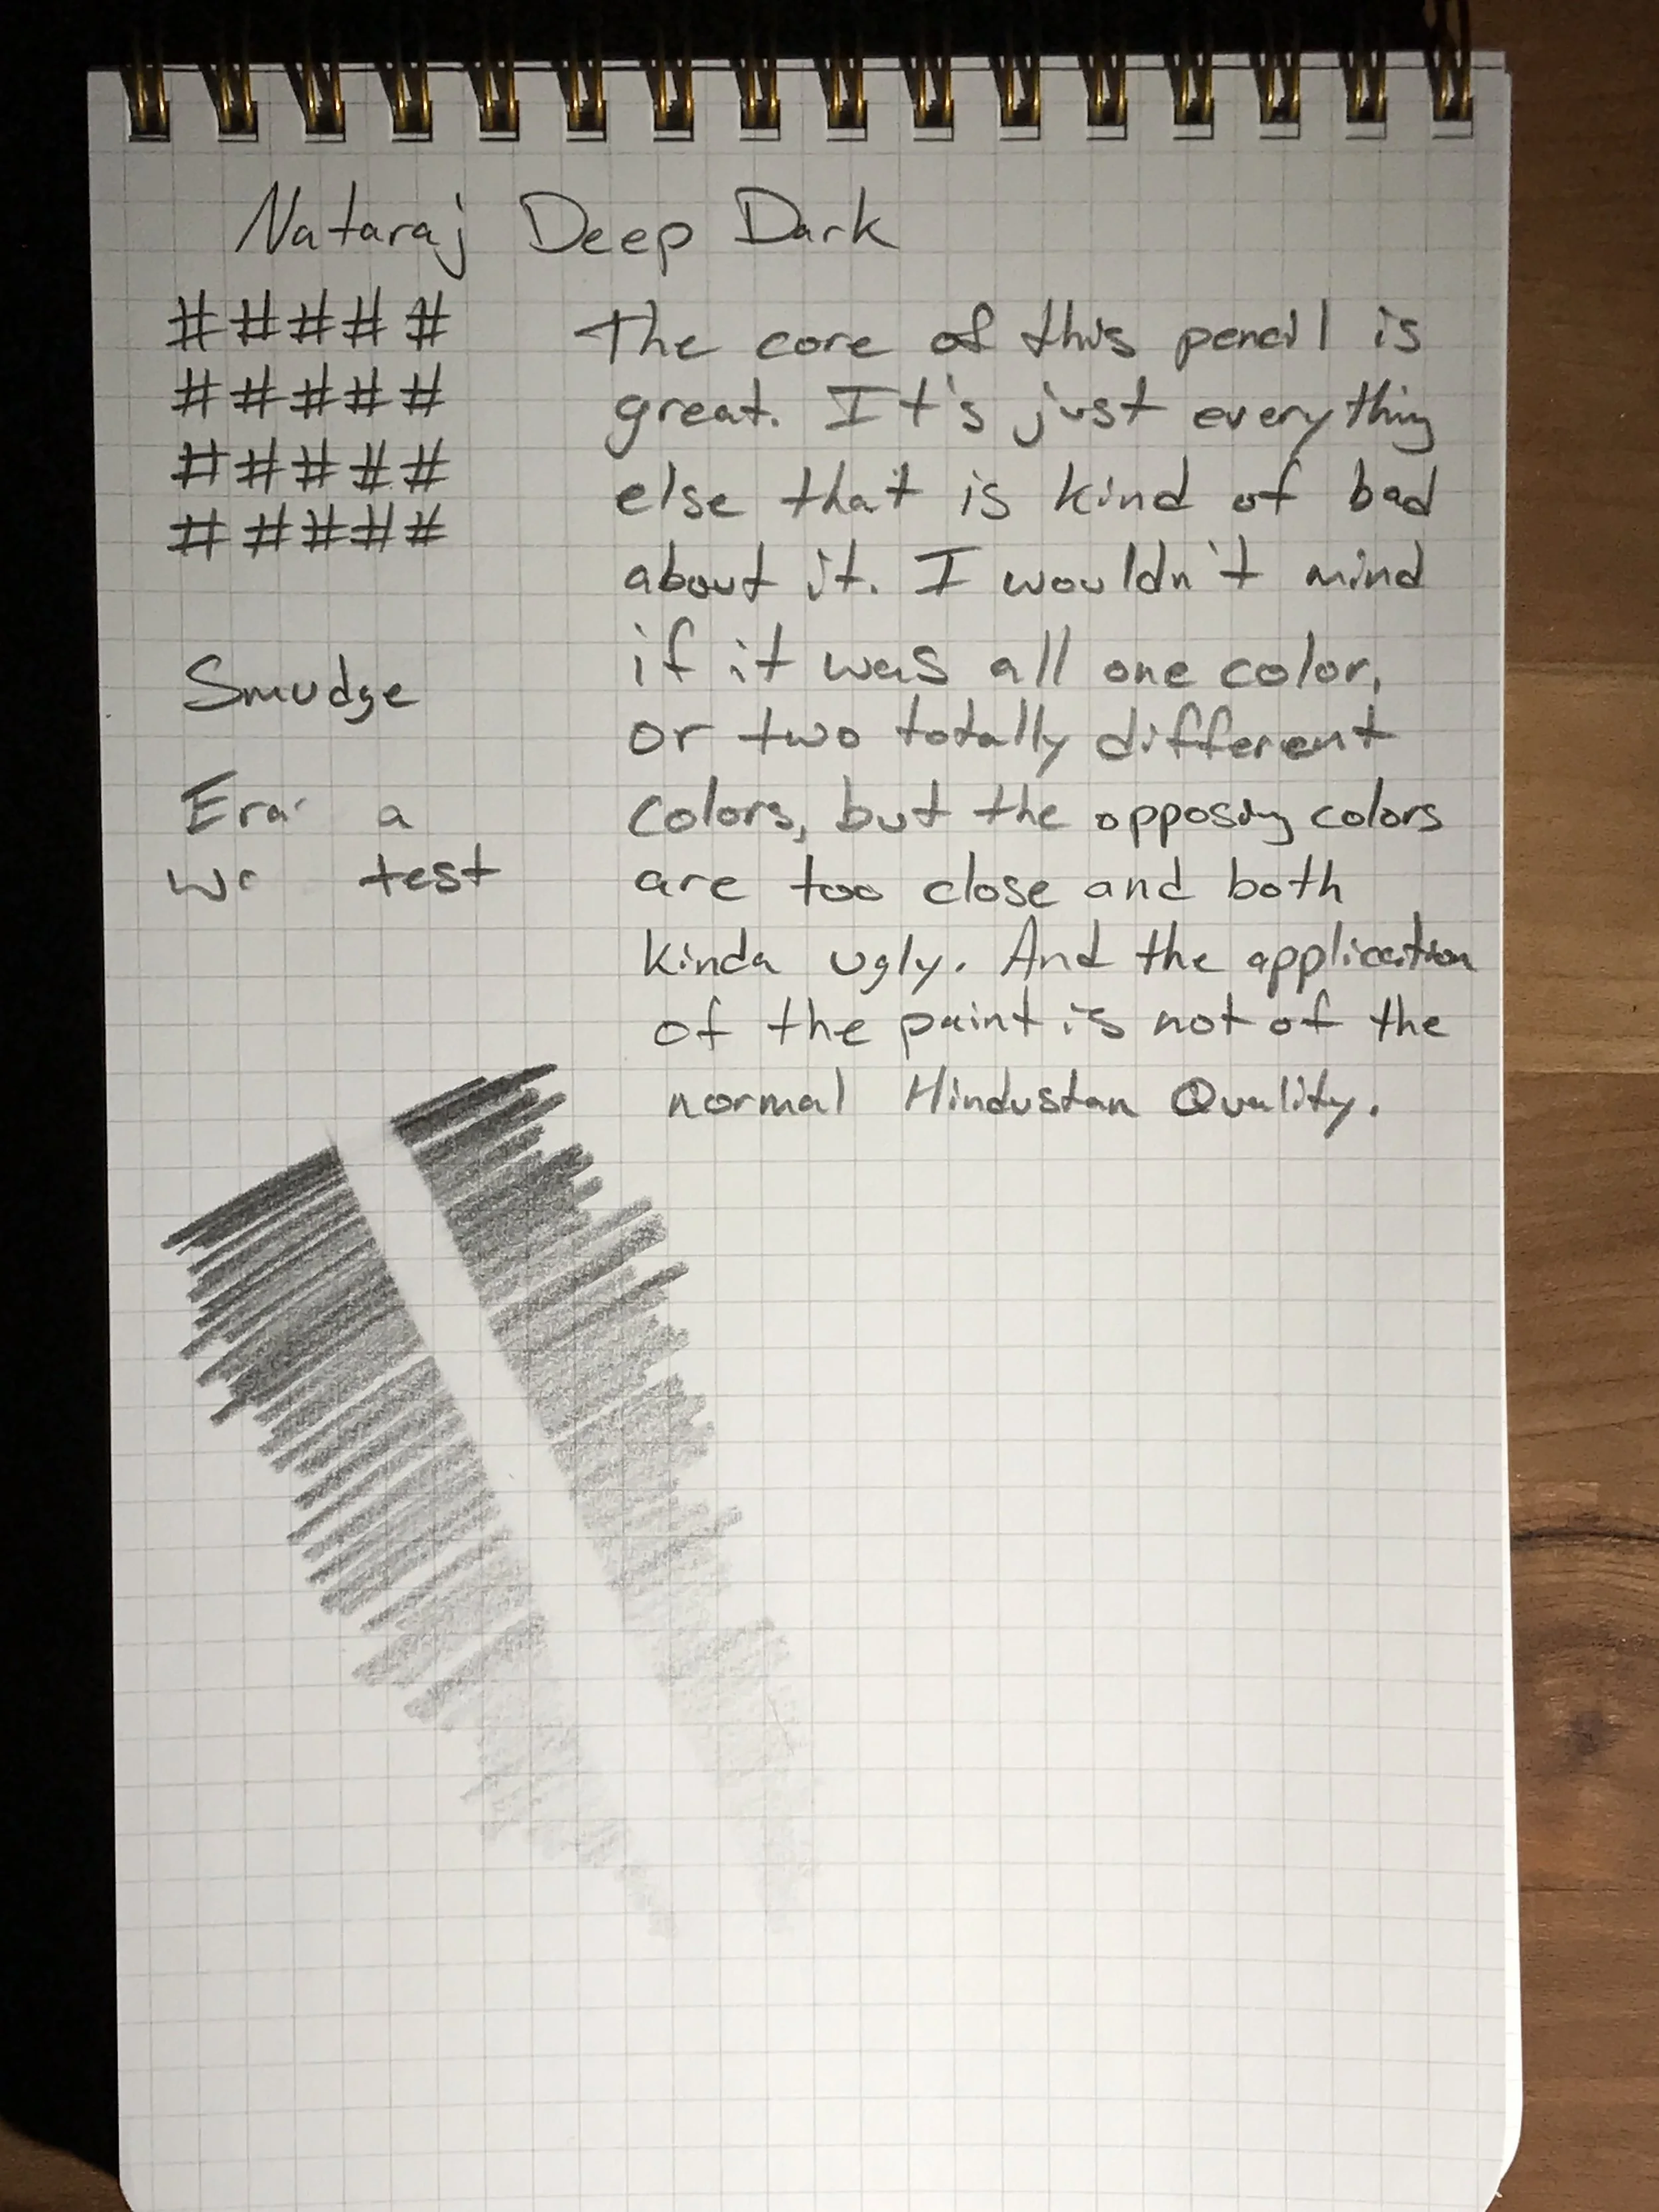 Nataraj Deep Dark
# # # # #
# # # # #
# # # # #
# # # # #
Smudge
Era a
test
The core of this pencil is
great. It's just everything
else that is kind of bad
about it. I wouldn't mind
if it was all one color,
or two totally different
colors, but the opposing colors
are too close and both
kinda ugly. And the application
of the paint is not of the
normal Hindustan Quality.